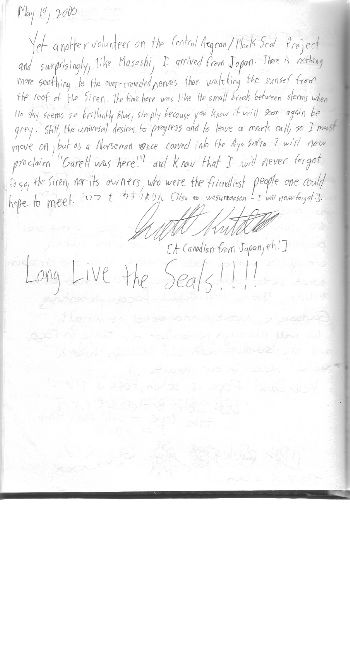 May 19, 2000
Yet another volunteer on the Central Aegean / Monk Seal Project
and surprisingly, like Masashi, I arrived from Japan. There is nothing
more soothing to the over-crowded nerves than watching the sunset from
the roof of the Siren. The time here was like the small break between storms when
the sky seems so brilliantly blue, simply because you know it will soon again be
grey. Still the universal desires to progress and to leave a mark call, so I must
move on, but as a Norseman once carved into the Aya Sofia I will now
proclaim "Garett was here!" and know that I will never forget
the Siren, nor its owners, who were the friendliest people one could
hope to meet. いつも わすれない [Itsu mo wasurenai - I will never forget].
Garett
[A Canadian from Japan, eh!]
Long Live the Seals!!!!